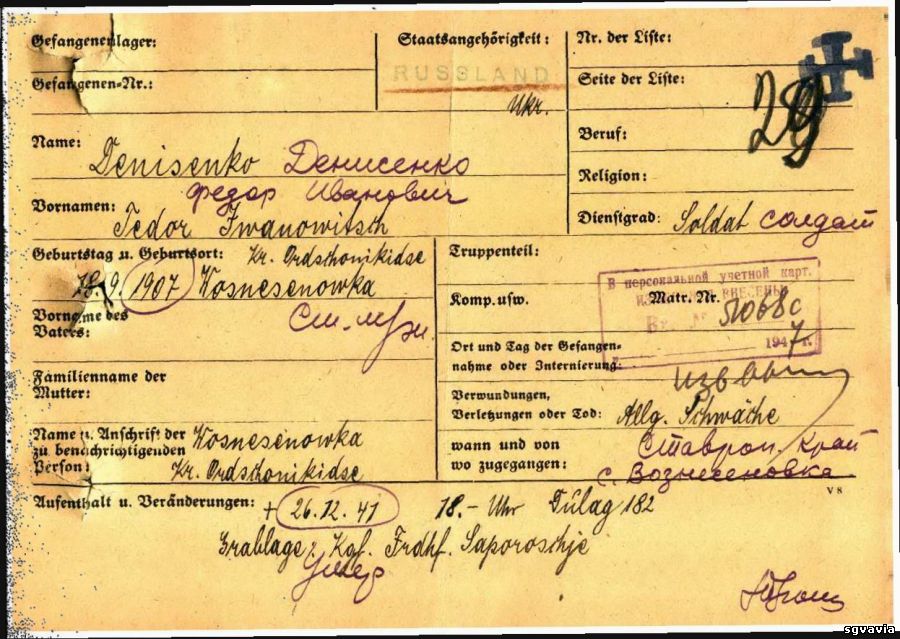 Gefangenenlager:
Gefangenen-Nr.:
Staatsangehörigkeit:
RUSSLAND
Ukr.
Nr. der Liste:
Seite der Liste:
29
Beruf:
Religion:
Dienstgrad: Soldat солдат
Name:
Denisenko Денисенко
Федор Иванович
Vornamen:
Fedor Iwanowitsch
Geburtstag u. Geburtsort: Kr. Ordschonikidse
1907 Wosnesenowka
Vorname des
Vaters:
Familienname der
Mutter:
Name u. Anschrift der
zu benachrichtigenden
Person:
Wosnesenowka
Kr. Ordschonikidse
Truppenteil:
В персональной учетной карт.
Komp. usw.
Matr. Nr.
194 7 г.
Ort und Tag der Gefangen-
nahme oder Internierung:
Verwundungen,
Verletzungen oder Tod: Allg. Schwäche
wann und von
wo zugegangen:
Ставроп. край
с. Вознесеновка
V 8
Aufenthalt u. Veränderungen: + 26.12.41 18.- Uhr Dulag 182
Grablage: Kgf. Frdhf. Saporoschje
Умер
sgvavia